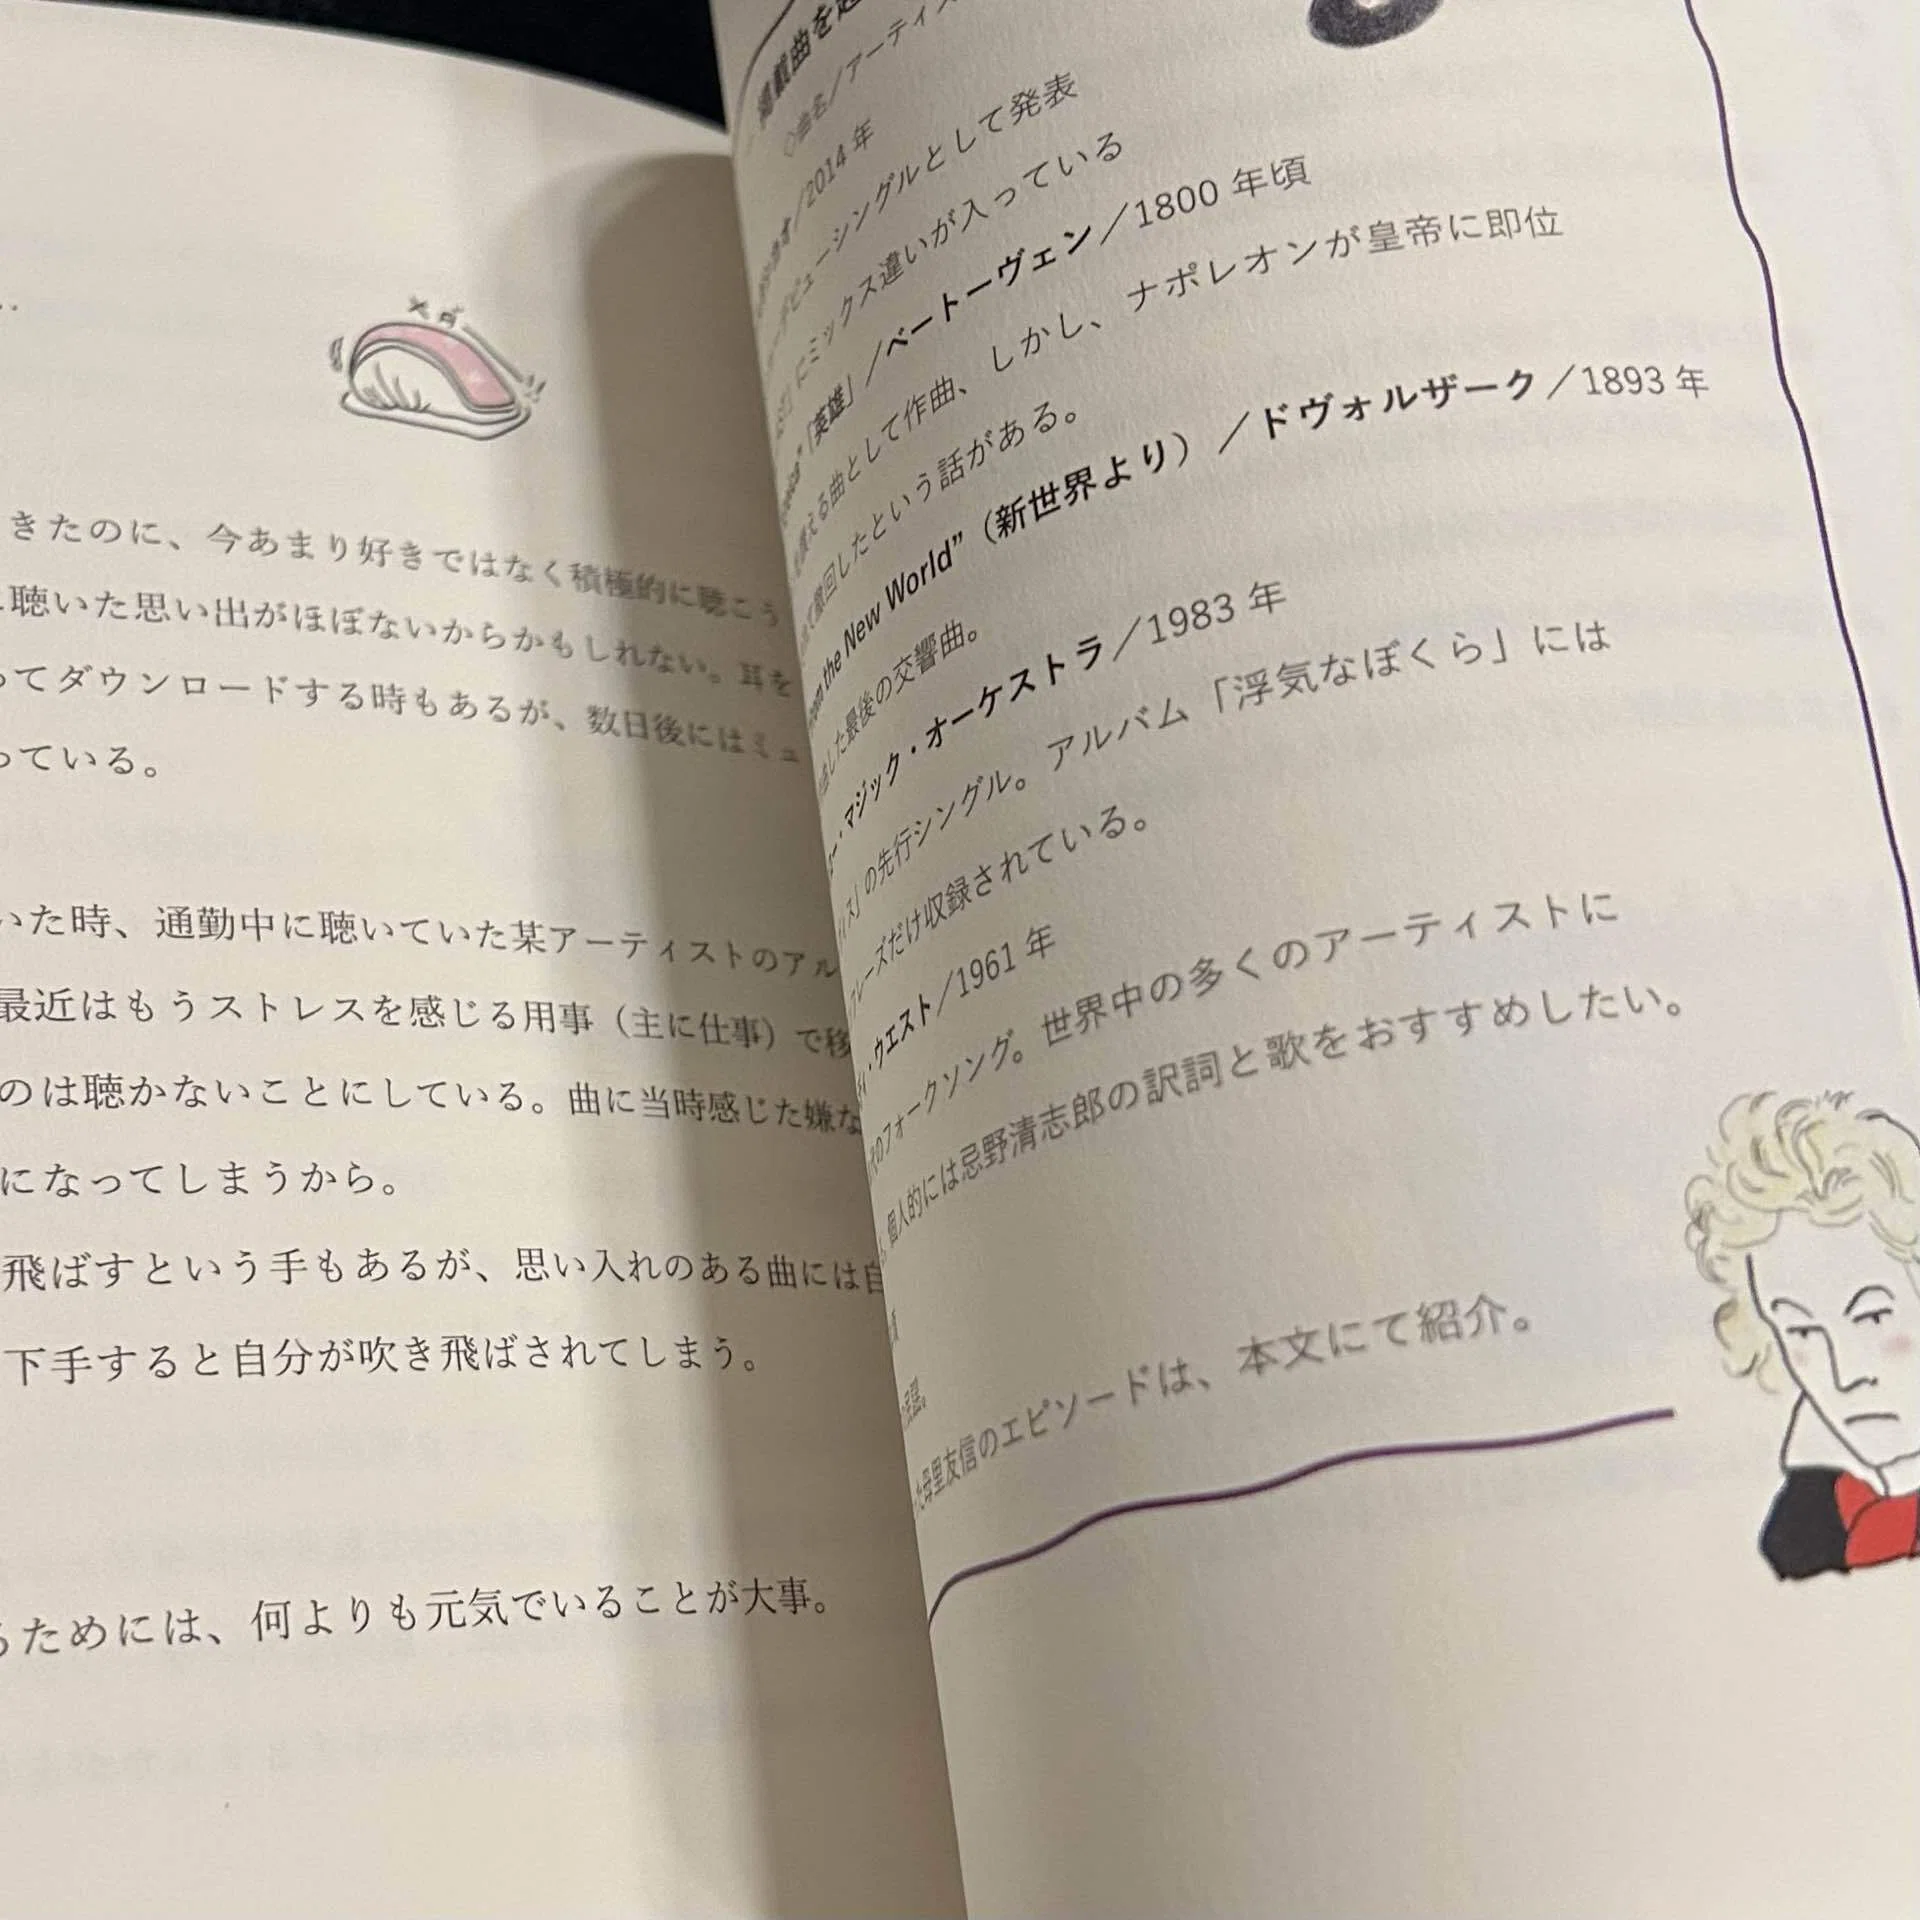 メダ
きたのに、今あまり好きではなく積極的に聴こう
聴いた思い出がほぼないからかもしれない。耳を
ってダウンロードする時もあるが、数日後にはミュ
っている。
いた時、通勤中に聴いていた某アーティストのアル
最近はもうストレスを感じる用事（主に仕事）で移
のは聴かないことにしている。曲に当時感じた嫌な
になってしまうから。
飛ばすという手もあるが、思い入れのある曲には自
下手すると自分が吹き飛ばされてしまう。
ためには、何よりも元気でいることが大事。
掲載曲を
◇曲名／アーティス
／2014 年
デビューシングルとして発表
にミックス違いが入っている
「英雄」／ベートーヴェン／1800 年頃
える曲として作曲、しかし、ナポレオンが皇帝に即位
て撤回したという話がある。
from the New World”（新世界より）／ドヴォルザーク／1893 年
した最後の交響曲。
ー・マジック・オーケストラ／1983 年
の先行シングル。アルバム「浮気なぼくら」には
フレーズだけ収録されている。
ィ・ウエスト／1961 年
のフォークソング。世界中の多くのアーティストに
個人的には忌野清志郎の訳詞と歌をおすすめしたい。
民謡。
た母里友信のエピソードは、本文にて紹介。